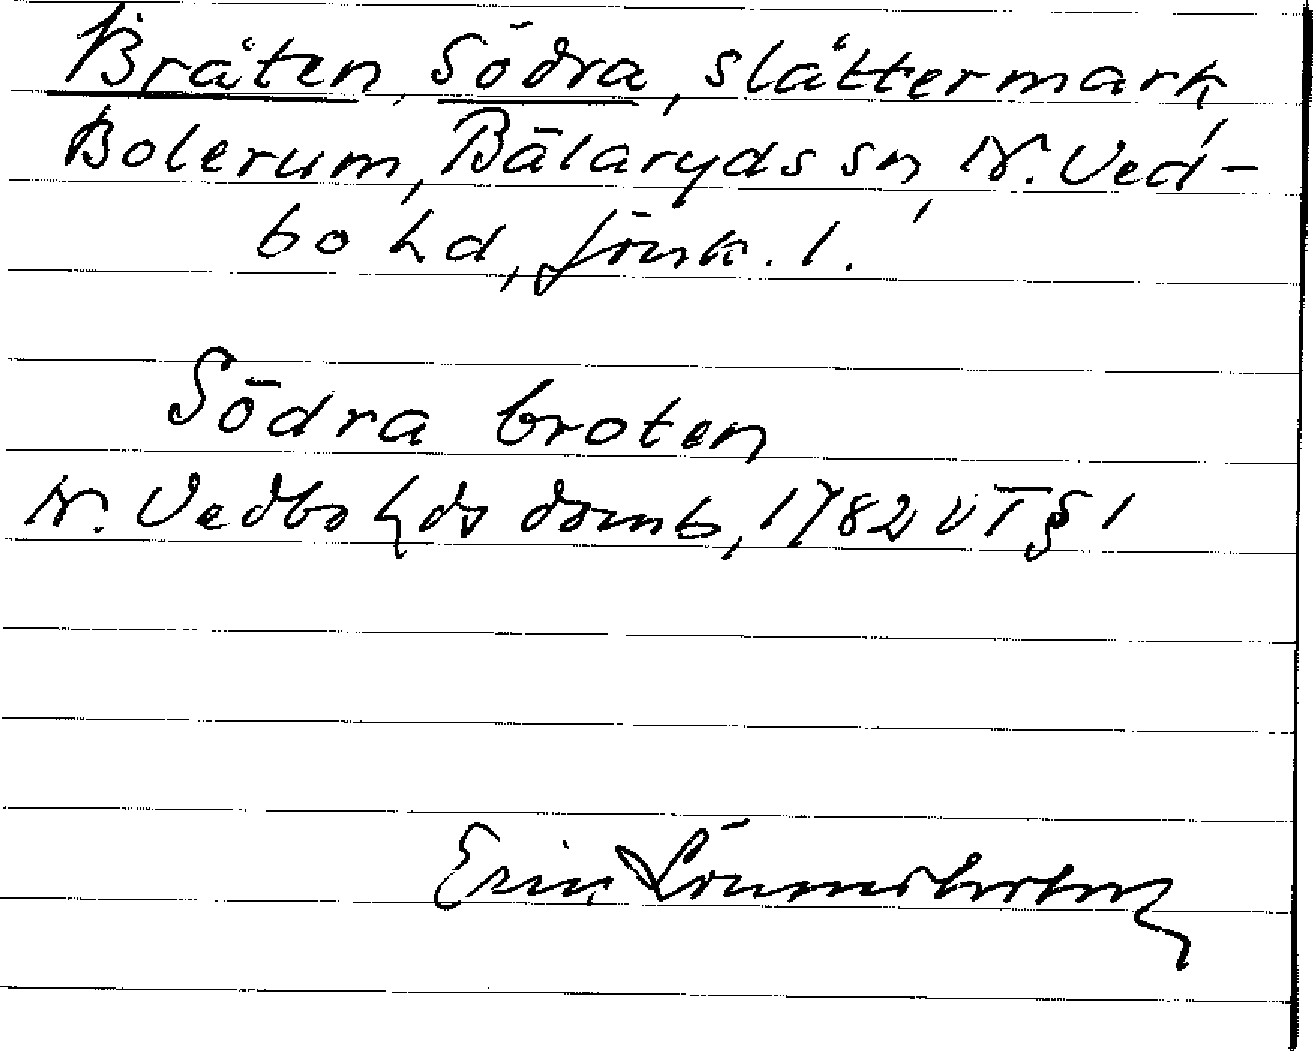 Bråten, Södra, slåttermark
Bolerum, Bälaryds sn, N. Ved-
bo hd, Jönk. l.
Södra broten
N. Vedbo hds domb, 1782 VT § 1
Erik Lönnerholm